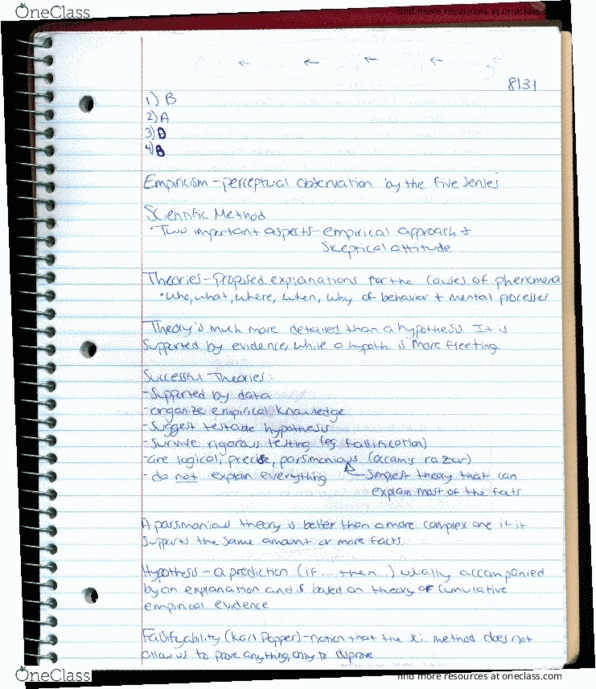 OneClass
find more resources at oneclass.com
8/31
1) B
2) A
3) D
4) B
Empiricism - perceptual observation by the five senses
Scientific Method
• Two important aspects - empirical approach +
skeptical attitude
Theories - Proposed explanations for the causes of phenomena
• Who, what, where, when, why of behavior + mental processes
Theory is much more detailed than a hypothesis. It is
supported by evidence, while a hypoth. is more fleeting.
Successful Theories:
- Supported by data
- organize empirical knowledge
- Suggest testable hypothesis
- Survive rigorous testing (eg. falsification)
- are logical, precise, parsmonious (occams razor)
- do not explain everything
Simplest theory that can
explain most of the facts
A parsimonious theory is better than a more complex one if it
supports the same amount or more facts.
Hypothesis - a prediction (if...then...) usually accompanied
by an explanation and is based on theory or cumulative
empirical evidence
Falsifyability (Karl Popper) - notion that the sci. method does not
allow us to prove anything, only to disprove
OneClass
find more resources at oneclass.com